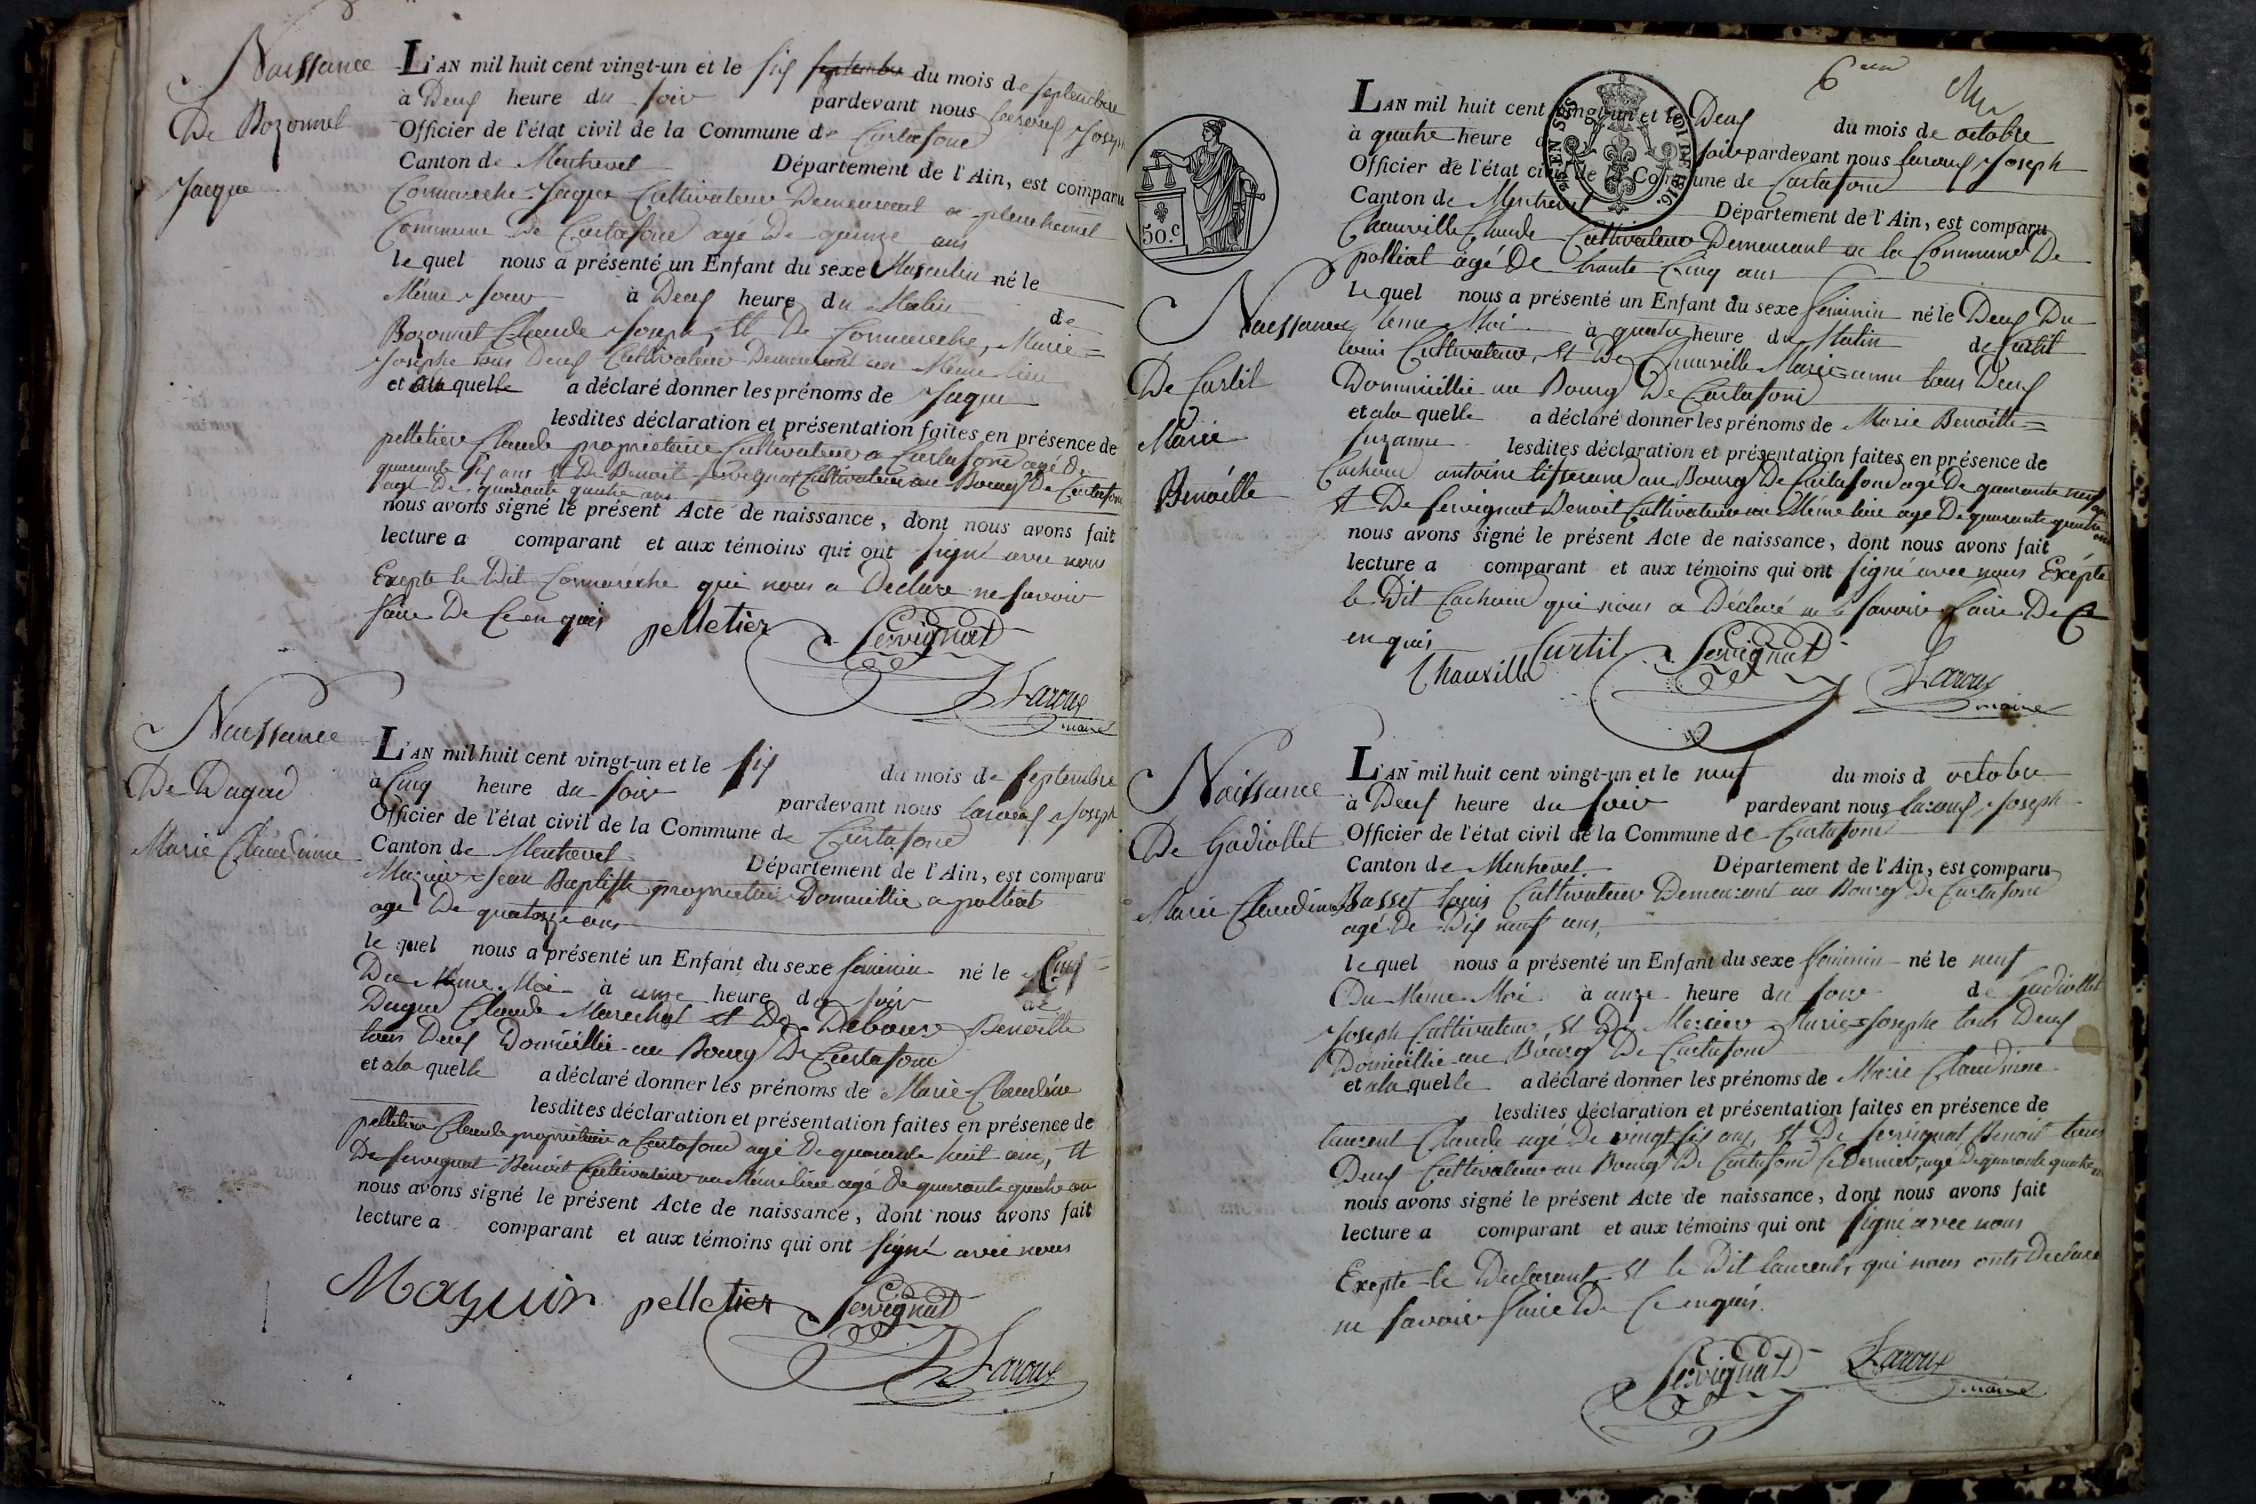 Naissance
De Bozonnet
Jacque
L'AN mil huit cent vingt-un et le six septembre du mois de septembre
à Deux heure du soir pardevant nous Laroux Joseph
Officier de l'état civil de la Commune de Curtafond
Canton de Montrevel Département de l'Ain, est comparu
Connareche Jaque Cultivateur Demeurant a
Commune De Curtafond agé De quinze ans
le quel nous a présenté un Enfant du sexe Masculin né le
Même Jour à Deux heure du Matin de
Bozonnet Claude Joseph, et De Connareche, Marie=
Josephe tous Deux Cultivateur Demeurant au Même lieu
et au quelle a déclaré donner les prénoms de Jaque
lesdites déclaration et présentation faites en présence de
pelletier Claude proprietaire Cultivateur a Curtafond agé De
quarante six ans et De Benoit Servignat Cultivateur au Bourg De Curtafond
agé De quarante quatre ans
nous avons signé le présent Acte de naissance, dont nous avons fait
lecture a comparant et aux témoins qui ont signé avec nous
Exepte le Dit Connareche qui nous a Declare ne savoir
faire De Ce en quis
pelletier Servignat
Laroux
maire
Naissance
De Dugad
Marie Claudinne
L'AN mil huit cent vingt-un et le six du mois de septembre
à Cinq heure du soir pardevant nous Laroux Joseph
Officier de l'état civil de la Commune de Curtafond
Canton de Montrevel Département de l'Ain, est comparu
Mazuir Jean Baptiste proprietaire Domicillie a polliat
age De quatorze ans
le quel nous a présenté un Enfant du sexe feminin né le Cinq
Du Même Moi à onze heure du soir de
Dugad Claude Marechal et De Debourg Benoitte
tous Deux Domicillie au Bourg De Curtafond
et a la quelle a déclaré donner les prénoms de Marie Claudine
lesdites déclaration et présentation faites en présence de
pelletier Claude proprietaire a Curtafond agé De quarante huit ans, et
De Servignat Benoit Cultivateur au Même lieu agé De quarante quatre an
nous avons signé le présent Acte de naissance, dont nous avons fait
lecture a comparant et aux témoins qui ont signé avec nous
Mazuir pelletier Servignat
Laroux
50.C
EN SUS
LOI DE 1816.
Naissance
De Curtil
Marie
Benoitte
L'AN mil huit cent vingt-un et le Deux du mois de octobre
à quatre heure du soir pardevant nous Laroux Joseph
Officier de l'état civil de la Commune de Curtafond
Canton de Montrevel Département de l'Ain, est comparu
Chauville Claude Cultivateur Demeurant a la Commune De
polliat agé De trante Cinq ans
le quel nous a présenté un Enfant du sexe feminin né le Deux Du
Même Moi à quatre heure du Matin de Curtil
Louis Cultivateur, et De Chauville Marie=anne tous Deux
Domicillié au Bourg De Curtafond
et a la quelle a déclaré donner les prénoms de Marie Benoitte=
Suzanne lesdites déclaration et présentation faites en présence de
Cachoud antoine tisserand au Bourg De Curtafond agé De quarante neuf ans
et De Servignat Benoit Cultivateur au Même lieu agé De quarante quatre ans
nous avons signé le présent Acte de naissance, dont nous avons fait
lecture a comparant et aux témoins qui ont signé avec nous Exépté
le Dit Cachoud qui nous a Déclaré ne le savoir faire De Ce
en quis
Chauville Curtil Servignat
Laroux
maire
Naissance
De Gadiollet
Marie Claudine
L'AN mil huit cent vingt-un et le neuf du mois d octobre
à Deux heure du soir pardevant nous Laroux Joseph
Officier de l'état civil de la Commune de Curtafond
Canton de Montrevel Département de l'Ain, est comparu
Basset Louis Cultivateur Demeurant au Bourg De Curtafond
agé De Dix neuf ans,
le quel nous a présenté un Enfant du sexe feminin né le neuf
Du Même Moi à onze heure du jour de Gadiollet
Joseph Cultivateur, et De Mercier Marie=Josephe tous Deux
Domicillié au Bourg De Curtafond
et a la quelle a déclaré donner les prénoms de Marie Claudinne
lesdites déclaration et présentation faites en présence de
Laurent Claude agé De vingt six ans, et De Servignat Benoit tous
Deux Cultivateur au Bourg De Curtafond Ce Dernier, agé De quarante quatre an
nous avons signé le présent Acte de naissance, dont nous avons fait
lecture a comparant et aux témoins qui ont signé avec nous
Exepte le Declarant et le Dit Laurent, qui nous onts Declaré
ne savoir faire De Ce enquis.
Servignat Laroux
maire